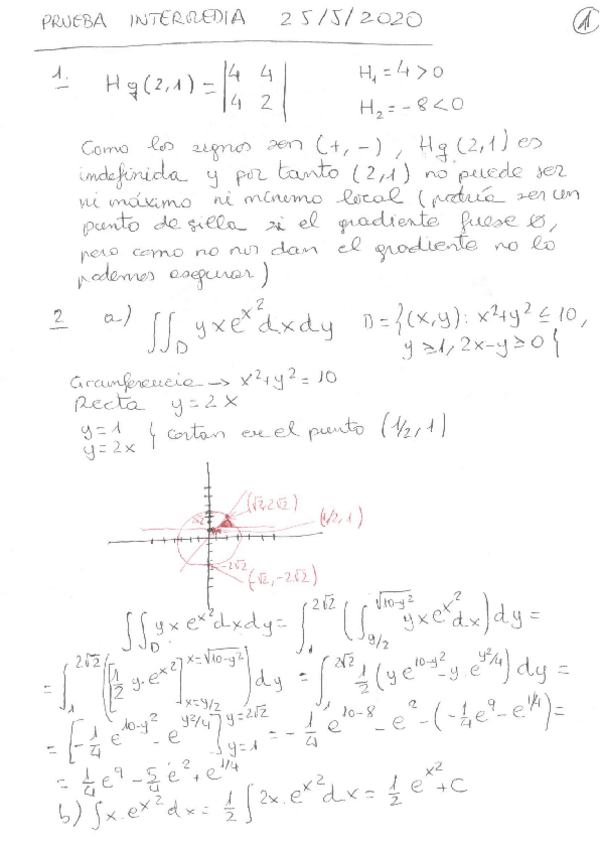 PRUEBA INTERMEDIA 25/5/2020 1
1. Hg(2,1) = |4 4| H₁=4>0
|4 2| H₂=-8<0
Como los signos son (+,-), Hg(2,1) es
indefinida y por tanto (2,1) no puede ser
ni máximo ni mínimo local (podría ser un
punto de silla si el gradiente fuese 0,
pero como no nos dan el gradiente no lo
podemos asegurar)
2 a) ∬_D yxe^{x²}dxdy D={(x,y): x²+y²≤10,
y≥1, 2x-y≥0}
Circunferencia → x²+y²=10
Recta y=2x
y=1
y=2x } cortan en el punto (1/2, 1)
(√2,2√2)
(1/2, 1)
-2√2
(-√2,-2√2)
∬_D yxe^{x²}dxdy = ∫_1^{2√2} (∫_{y/2}^{√(10-y²)} yxe^{x²}dx)dy =
= ∫_1^{2√2} ([1/2 y·e^{x²}]_{x=y/2}^{x=√(10-y²)})dy = ∫_1^{2√2} 1/2 (ye^{10-y²}-y·e^{y²/4})dy =
= [-1/4 e^{10-y²} - e^{y²/4}]_{y=1}^{y=2√2} = -1/4 e^{10-8} - e² - (-1/4 e⁹ - e^{1/4}) =
= 1/4 e⁹ - 5/4 e² + e^{1/4}
b) ∫x·e^{x²}dx = 1/2 ∫2x·e^{x²}dx = 1/2 e^{x²}+C